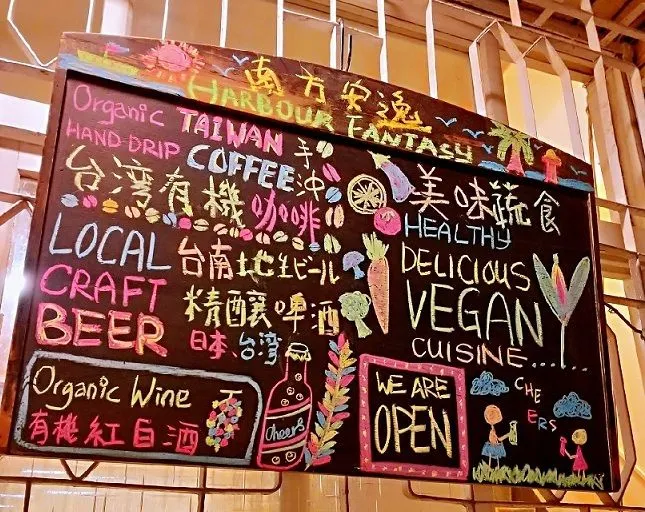 南方安逸
HARBOUR FANTASY
Organic TAIWAN
HAND-DRIP COFFEE 手沖
台湾有機咖啡
LOCAL
CRAFT
BEER
台南地生ビール
精釀啤酒
日本、台湾
Organic Wine
有機紅白酒
Cheers
美味蔬食
HEALTHY
DELICIOUS
VEGAN
CUISINE......
WE ARE
OPEN
CHE
ERS